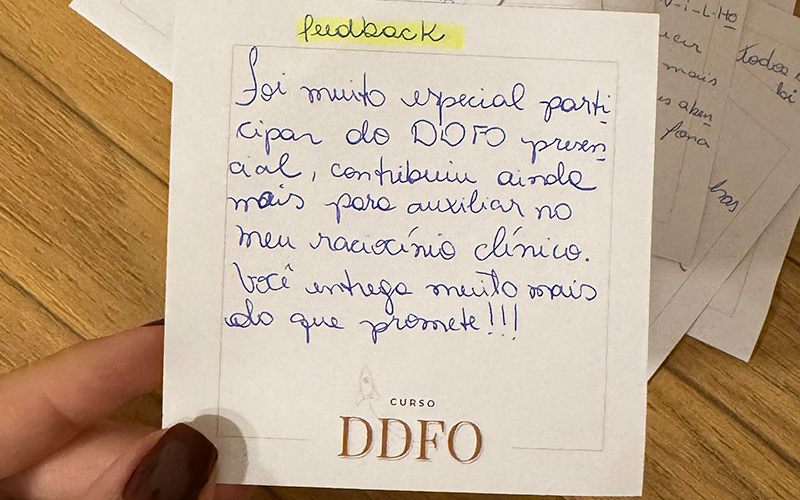 feedback
Foi muito especial parti-
cipar do DDFO presen-
cial, contribuiu ainda
mais para auxiliar no
meu raciocínio clínico.
Você entrega muito mais
do que promete!!!
CURSO
DDFO
V-I-L-HO
mais
Todos
foi